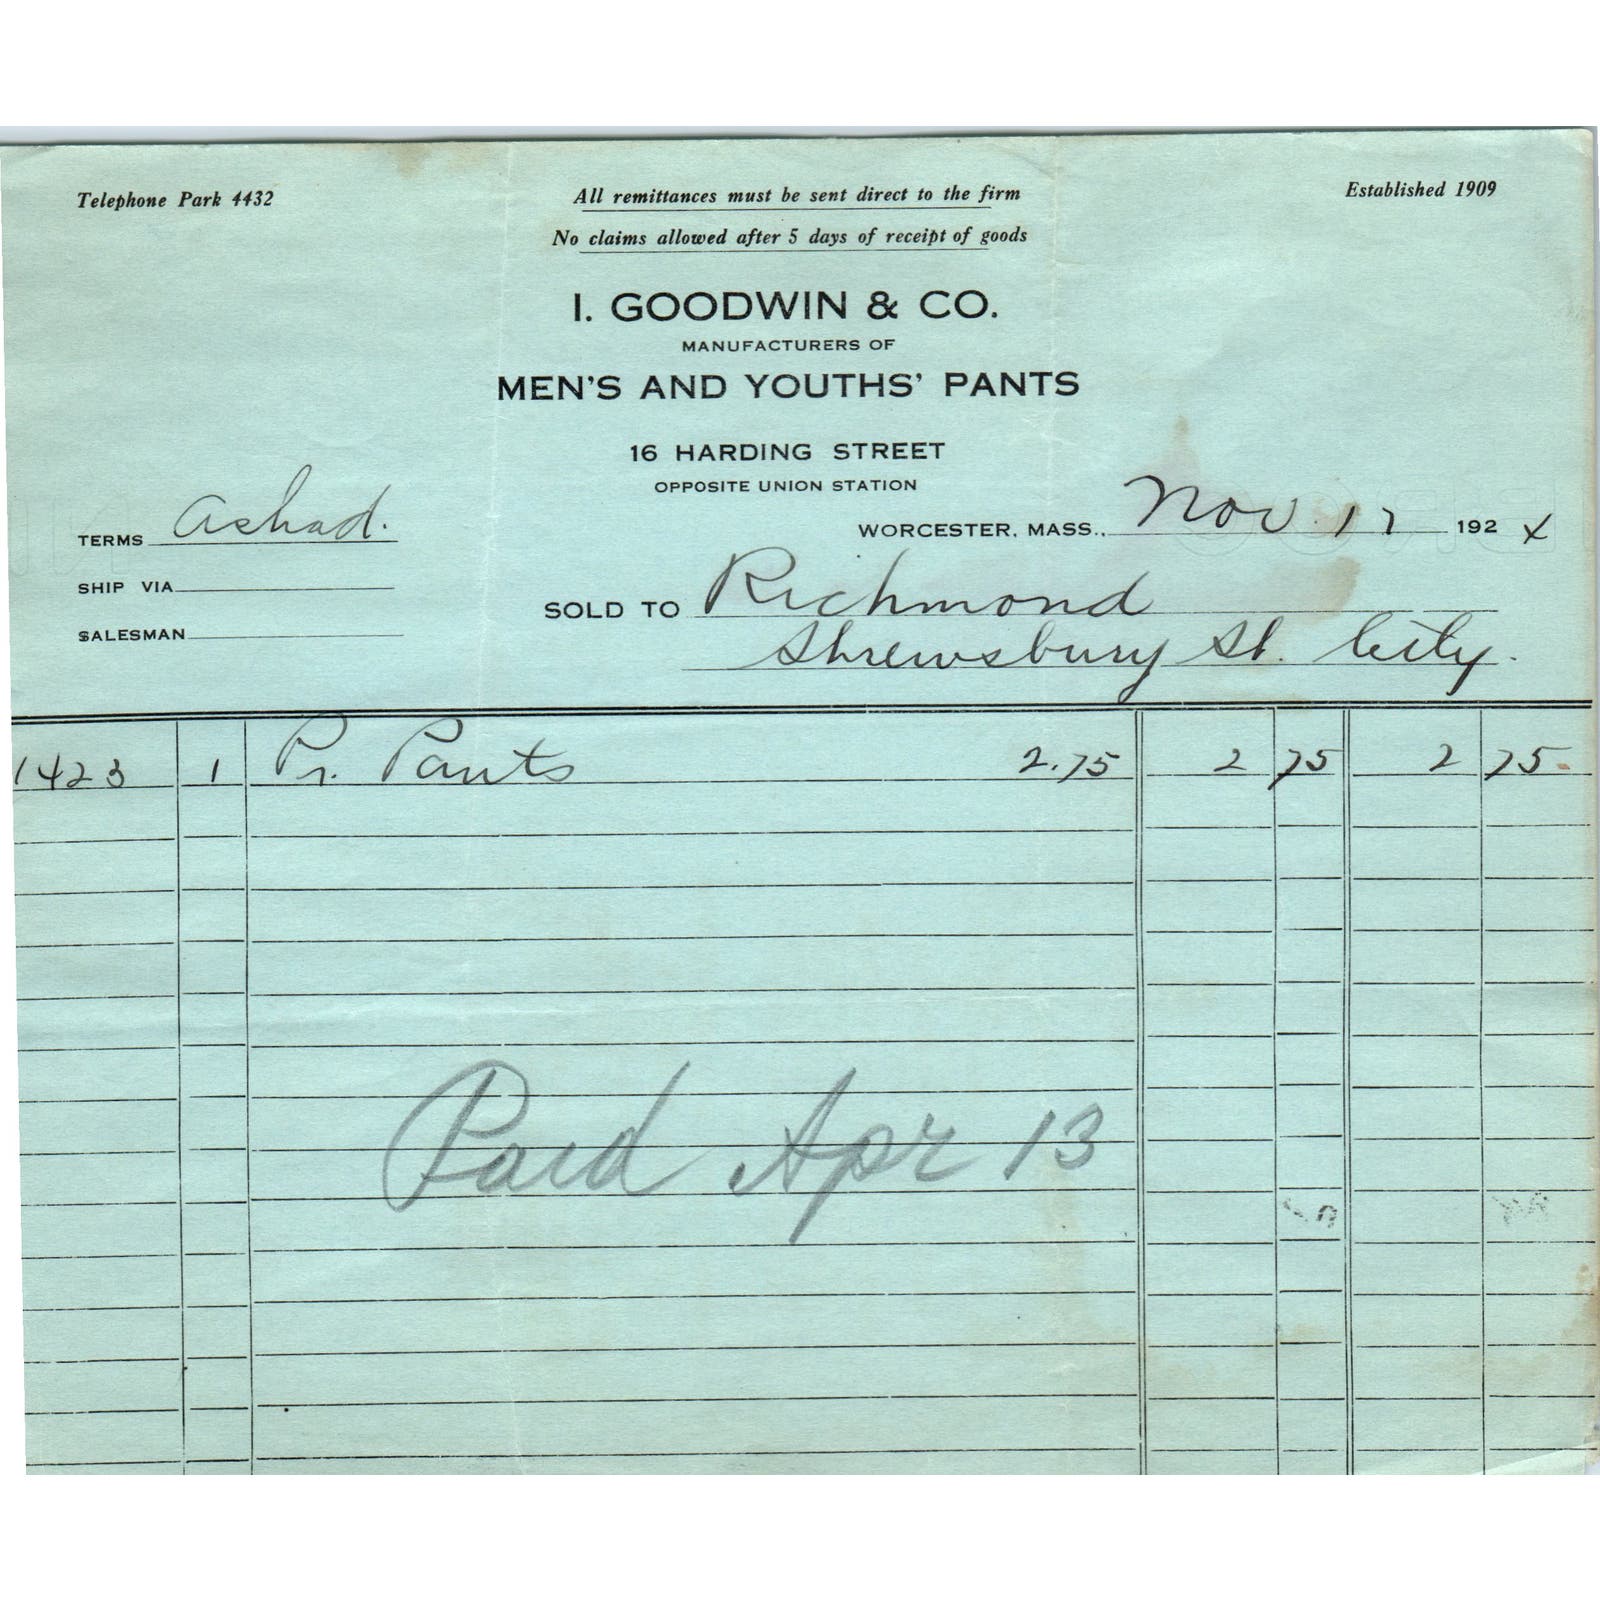 Telephone Park 4432
All remittances must be sent direct to the firm
Established 1909
No claims allowed after 5 days of receipt of goods
I. GOODWIN & CO.
MANUFACTURERS OF
MEN'S AND YOUTHS' PANTS
16 HARDING STREET
OPPOSITE UNION STATION
TERMS Ashad.
WORCESTER, MASS., Nov. 17 192
SHIP VIA
SOLD TO Richmond
SALESMAN
Shrewsbury St. City.
1423 1 Pr. Pants 2.75 2 75 2 75
Paid Apr 13